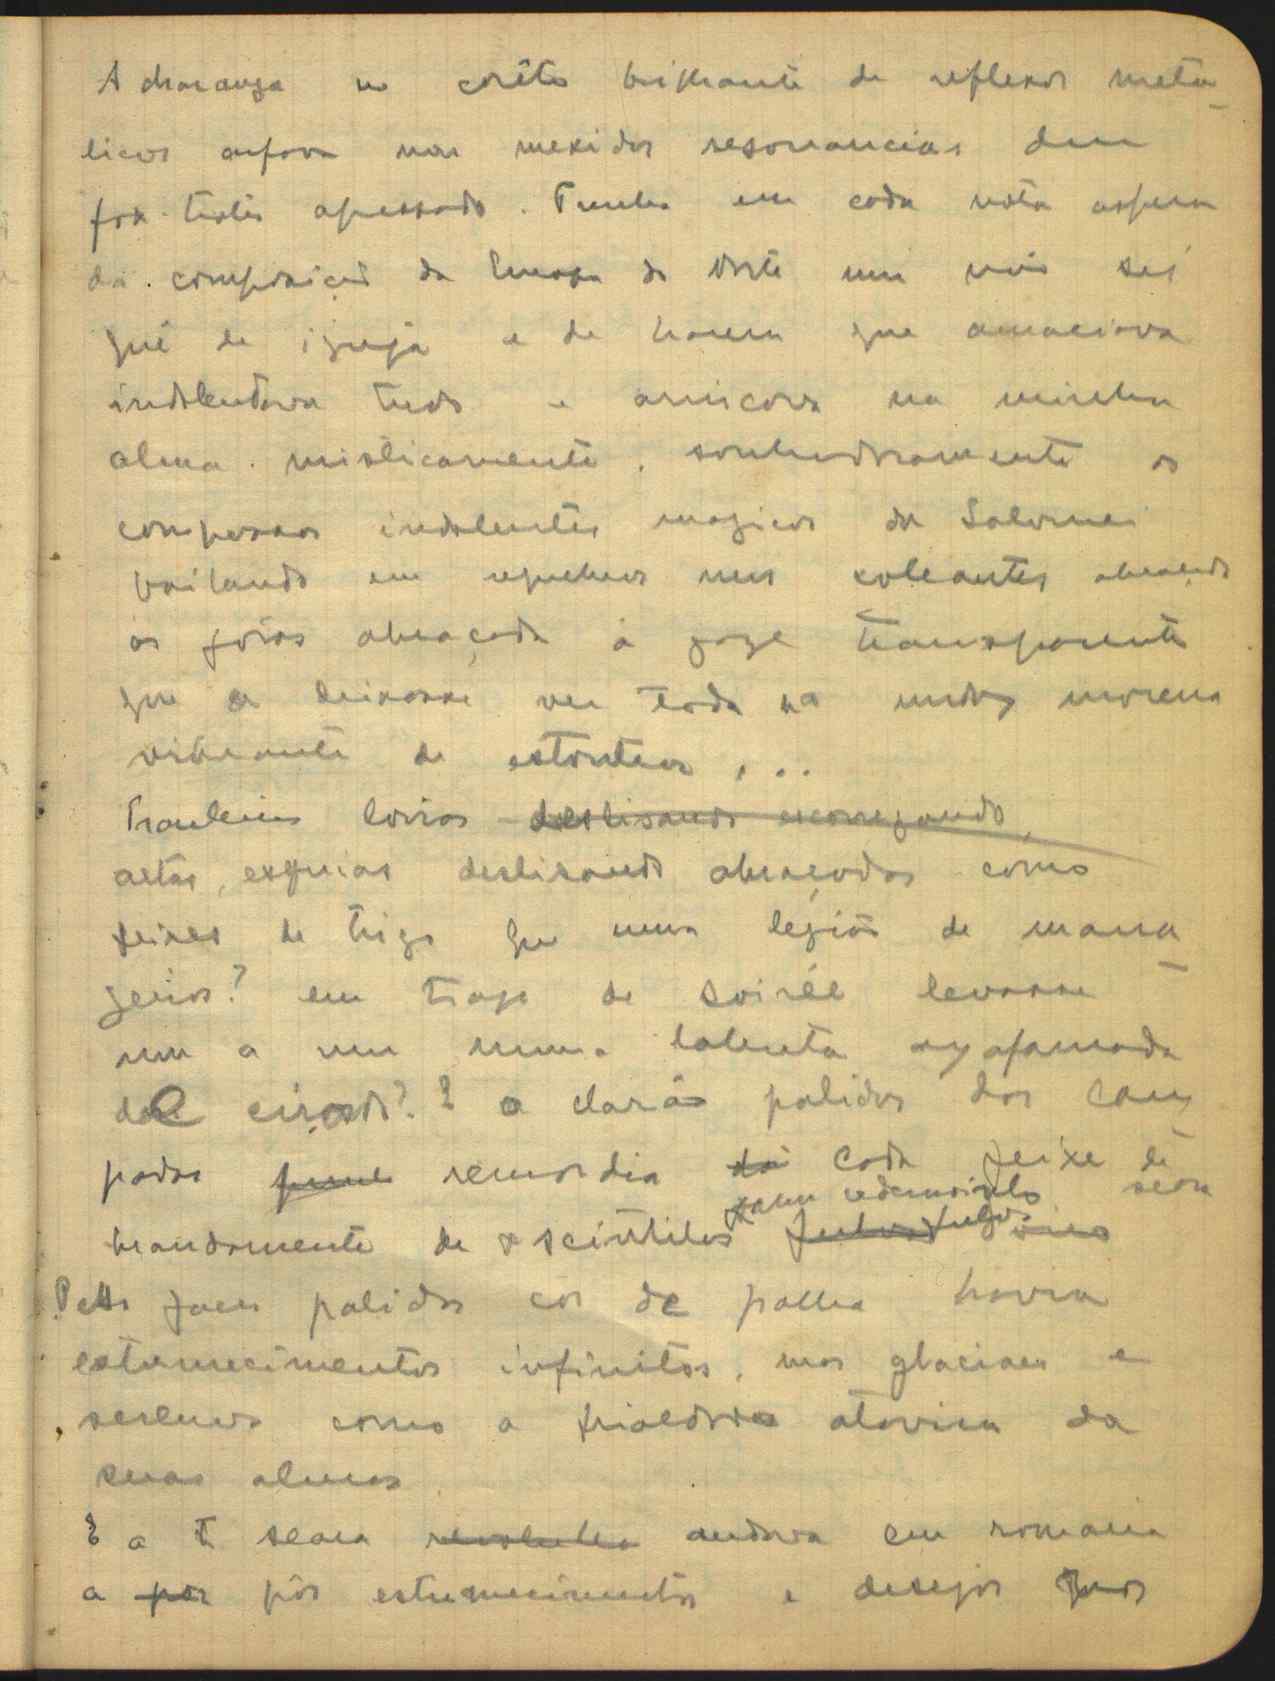 A charanga no corêto brilhante de reflexos meta-
licos arfava nas mexidas resonancias dum
fox-trote apressado. Punha em cada nota aspera
da composição da Europa do Norte um não sei
quê de igreja e de harem que amaciava
indolentava tudo e arriscava na minha
alma. misticamente, sonhadoramente os
compassos indolentes magicos da Salomé
bailando em requebros nus coleantes
as joias abraçada á gaze transparente
que a deixasse ver toda na nudez morena
vibrante de estontear ...
Frauleins loiras deslisando escorregando,
altas, esguias deslisando abraçadas como
feixes de trigo que uma legião de mana-
geiros? em traje de soirée levasse
um a um numa
de eirado?. E o clarão palido das lam
padas remordia cada feixe de
num redemoinho seara
brandamente de scintilas fulvas fulgor
Pelas faces palidas côr de palha havia
estremecimentos infinitos, mas glaciaes e
serenos como a frialdade atavica da
suas almas
E a seara andava em romaria
a por pôr estremecimentos e desejos